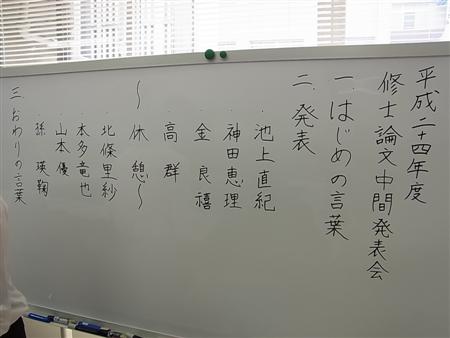 平成二十四年度
修士論文中間発表会
一.はじめの言葉
二.発表
・池上直紀
・神田恵理
・金良禧
・高群
～休憩～
・北條里紗
・本多竜也
・山本優
・孫瑛鞠
三.おわりの言葉